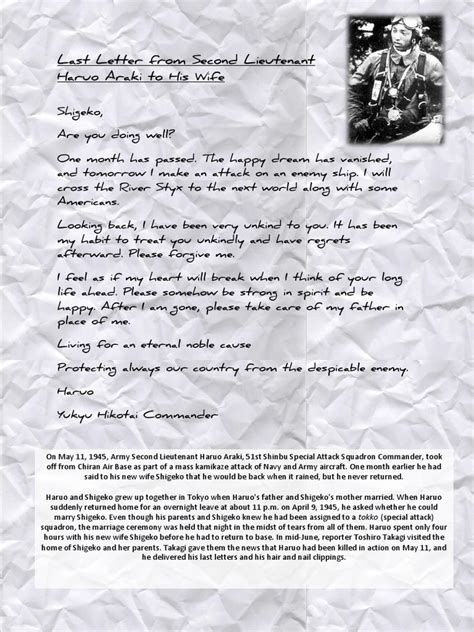 Last Letter from Second Lieutenant
Haruo Araki to His Wife
Shigeko,
Are you doing well?
One month has passed. The happy dream has vanished,
and tomorrow I make an attack on an enemy ship. I will
cross the River Styx to the next world along with some
Americans.
Looking back, I have been very unkind to you. It has been
my habit to treat you unkindly and have regrets
afterward. Please forgive me.
I feel as if my heart will break when I think of your long
life ahead. Please somehow be strong in spirit and be
happy. After I am gone, please take care of my father in
place of me.
Living for an eternal noble cause
Protecting always our country from the despicable enemy.
Haruo
Yukyu Hikotai Commander
On May 11, 1945, Army Second Lieutenant Haruo Araki, 51st Shinbu Special Attack Squadron Commander, took
off from Chiran Air Base as part of a mass kamikaze attack of Navy and Army aircraft. One month earlier he had
said to his new wife Shigeko that he would be back when it rained, but he never returned.
Haruo and Shigeko grew up together in Tokyo when Haruo's father and Shigeko's mother married. When Haruo
suddenly returned home for an overnight leave at about 11 p.m. on April 9, 1945, he asked whether he could
marry Shigeko. Even though his parents and Shigeko knew he had been assigned to a tokko (special attack)
squadron, the marriage ceremony was held that night in the midst of tears from all of them. Haruo spent only four
hours with his new wife Shigeko before he had to return to base. In mid-June, reporter Toshiro Takagi visited the
home of Shigeko and her parents. Takagi gave them the news that Haruo had been killed in action on May 11, and
he delivered his last letters and his hair and nail clippings.